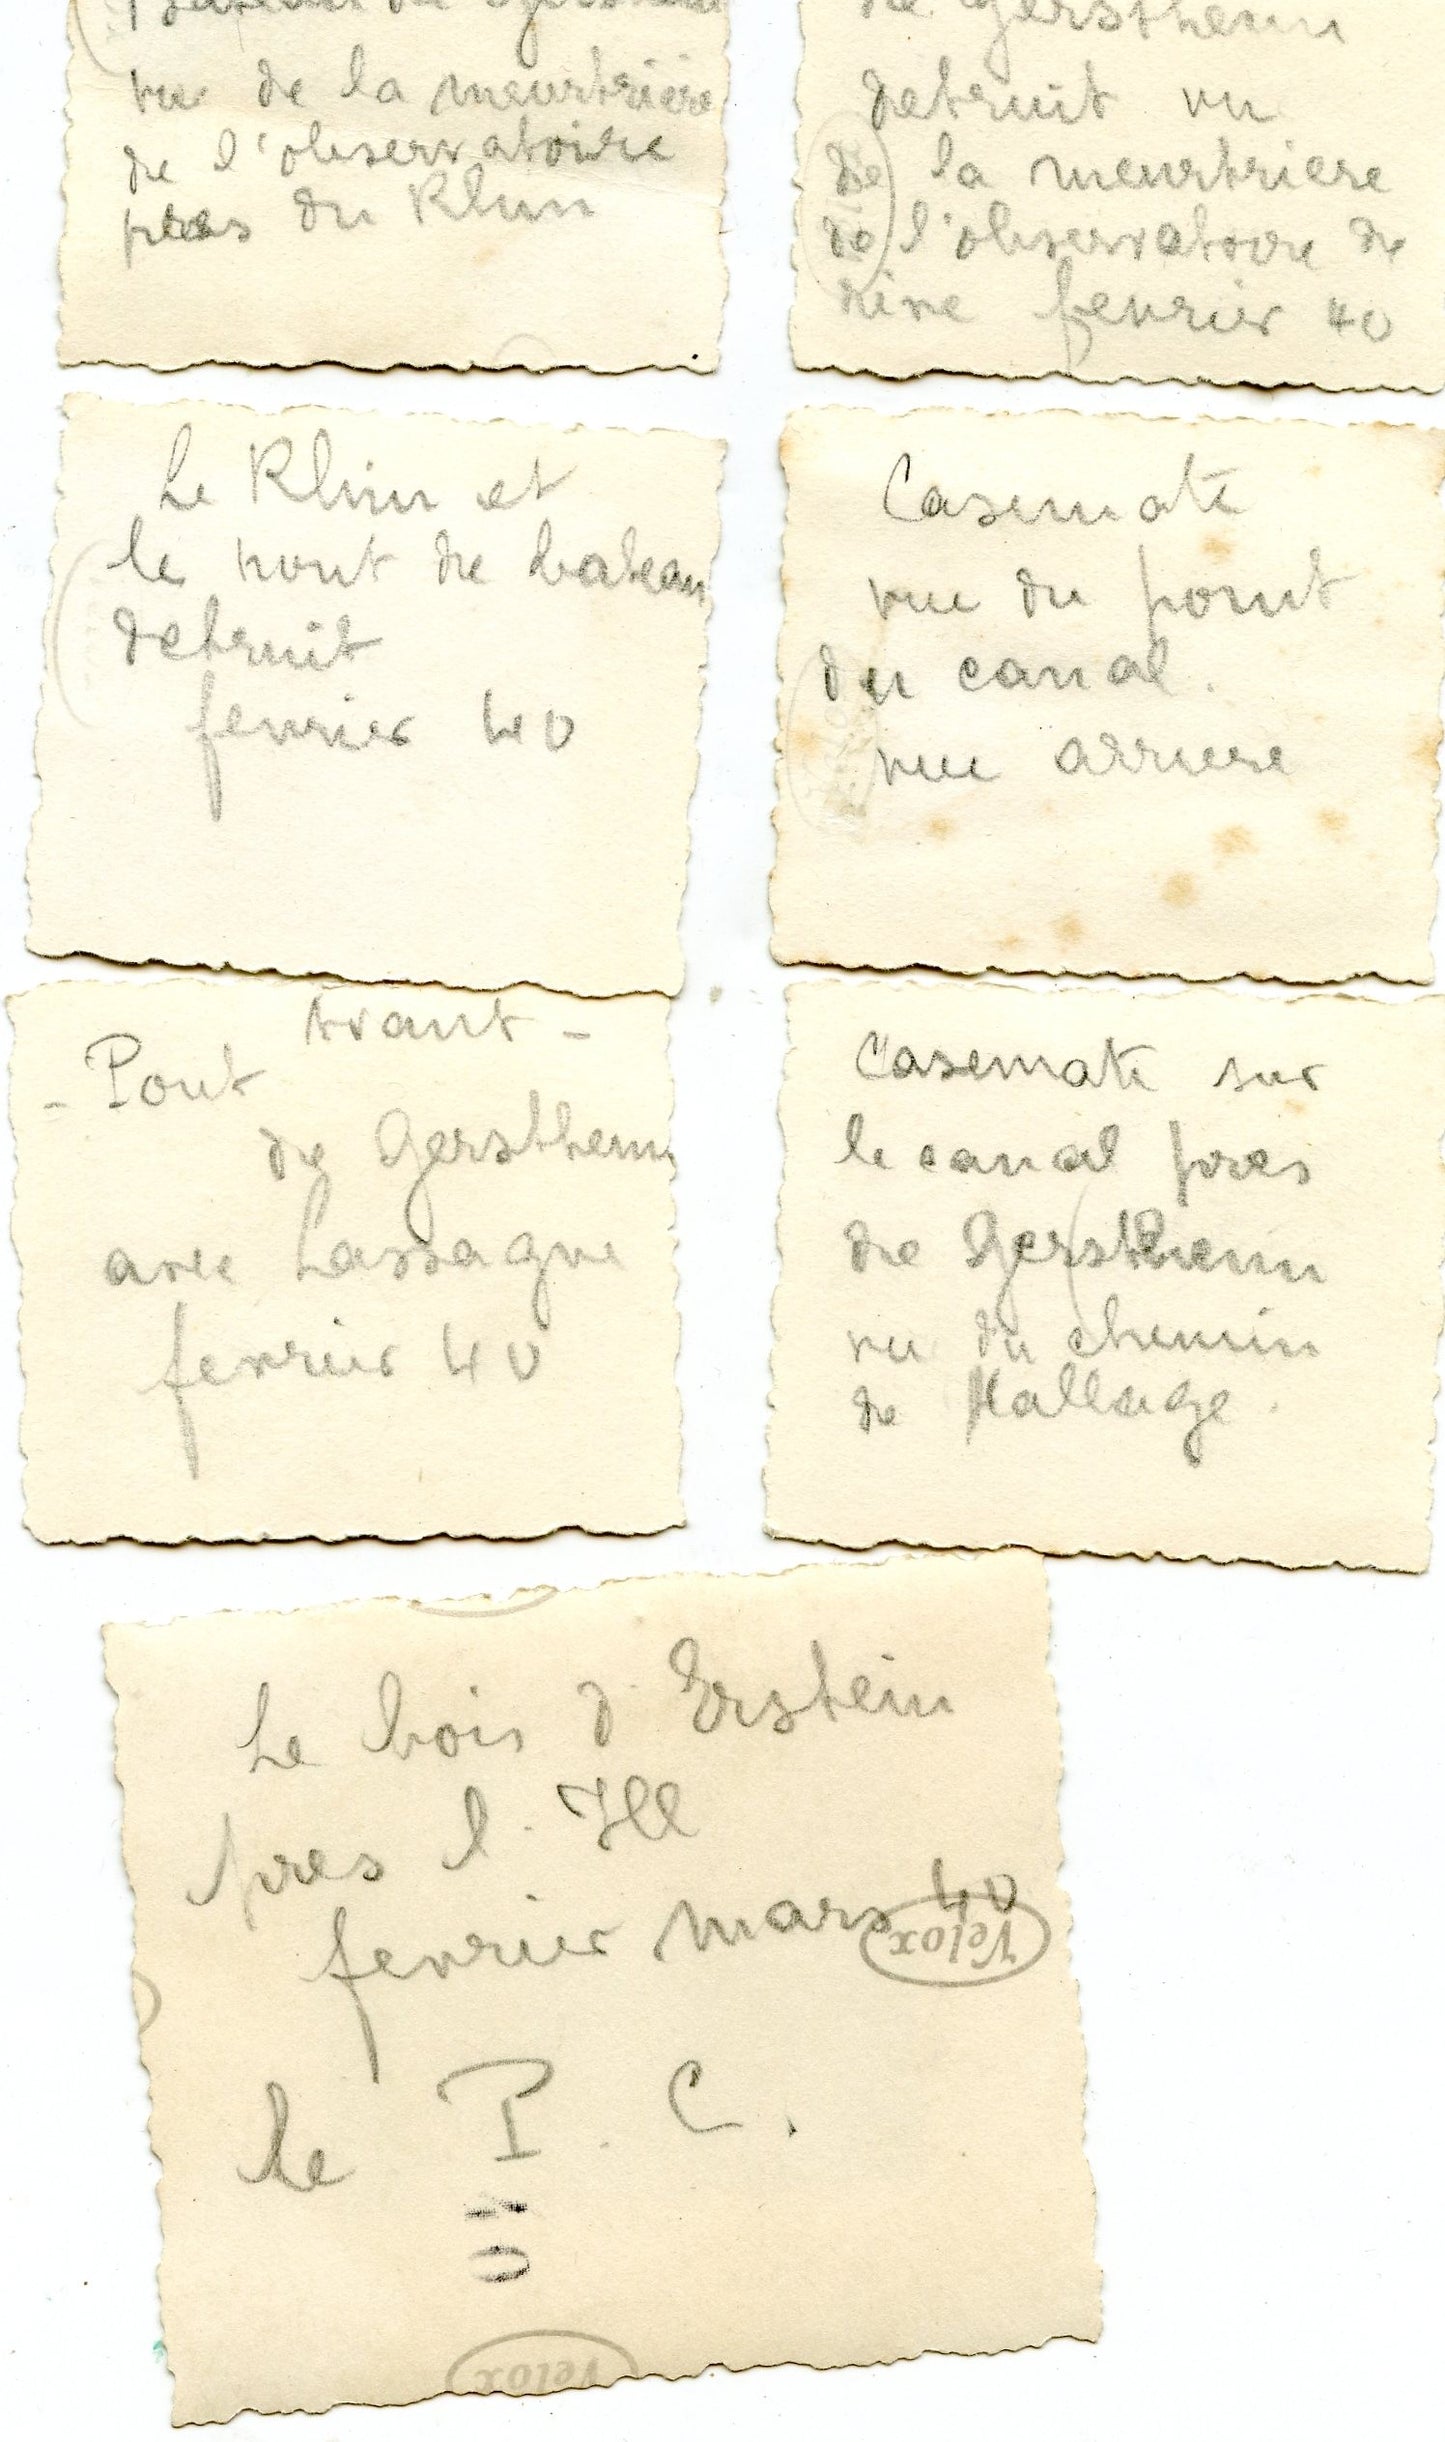 de Gerstheim
vu de la meurtrière
de l'observatoire
près du Rhin
de Gerstheim
detruit vu
de la meurtriere
de l'observatoire de
rive fevrier 40
Le Rhin et
le pont de bateau
detruit
fevrier 40
Casemate
vue du pont
du canal.
vue arriere
avant -
- Pont
de Gerstheim
avec Lassagne
fevrier 40
Casemate sur
le canal pres
de Gerstheim
vu du chemin
de Hallage.
Le bois d'Erstein
pres l'Ill
fevrier mars 40
Velox
le P.C.
Velox